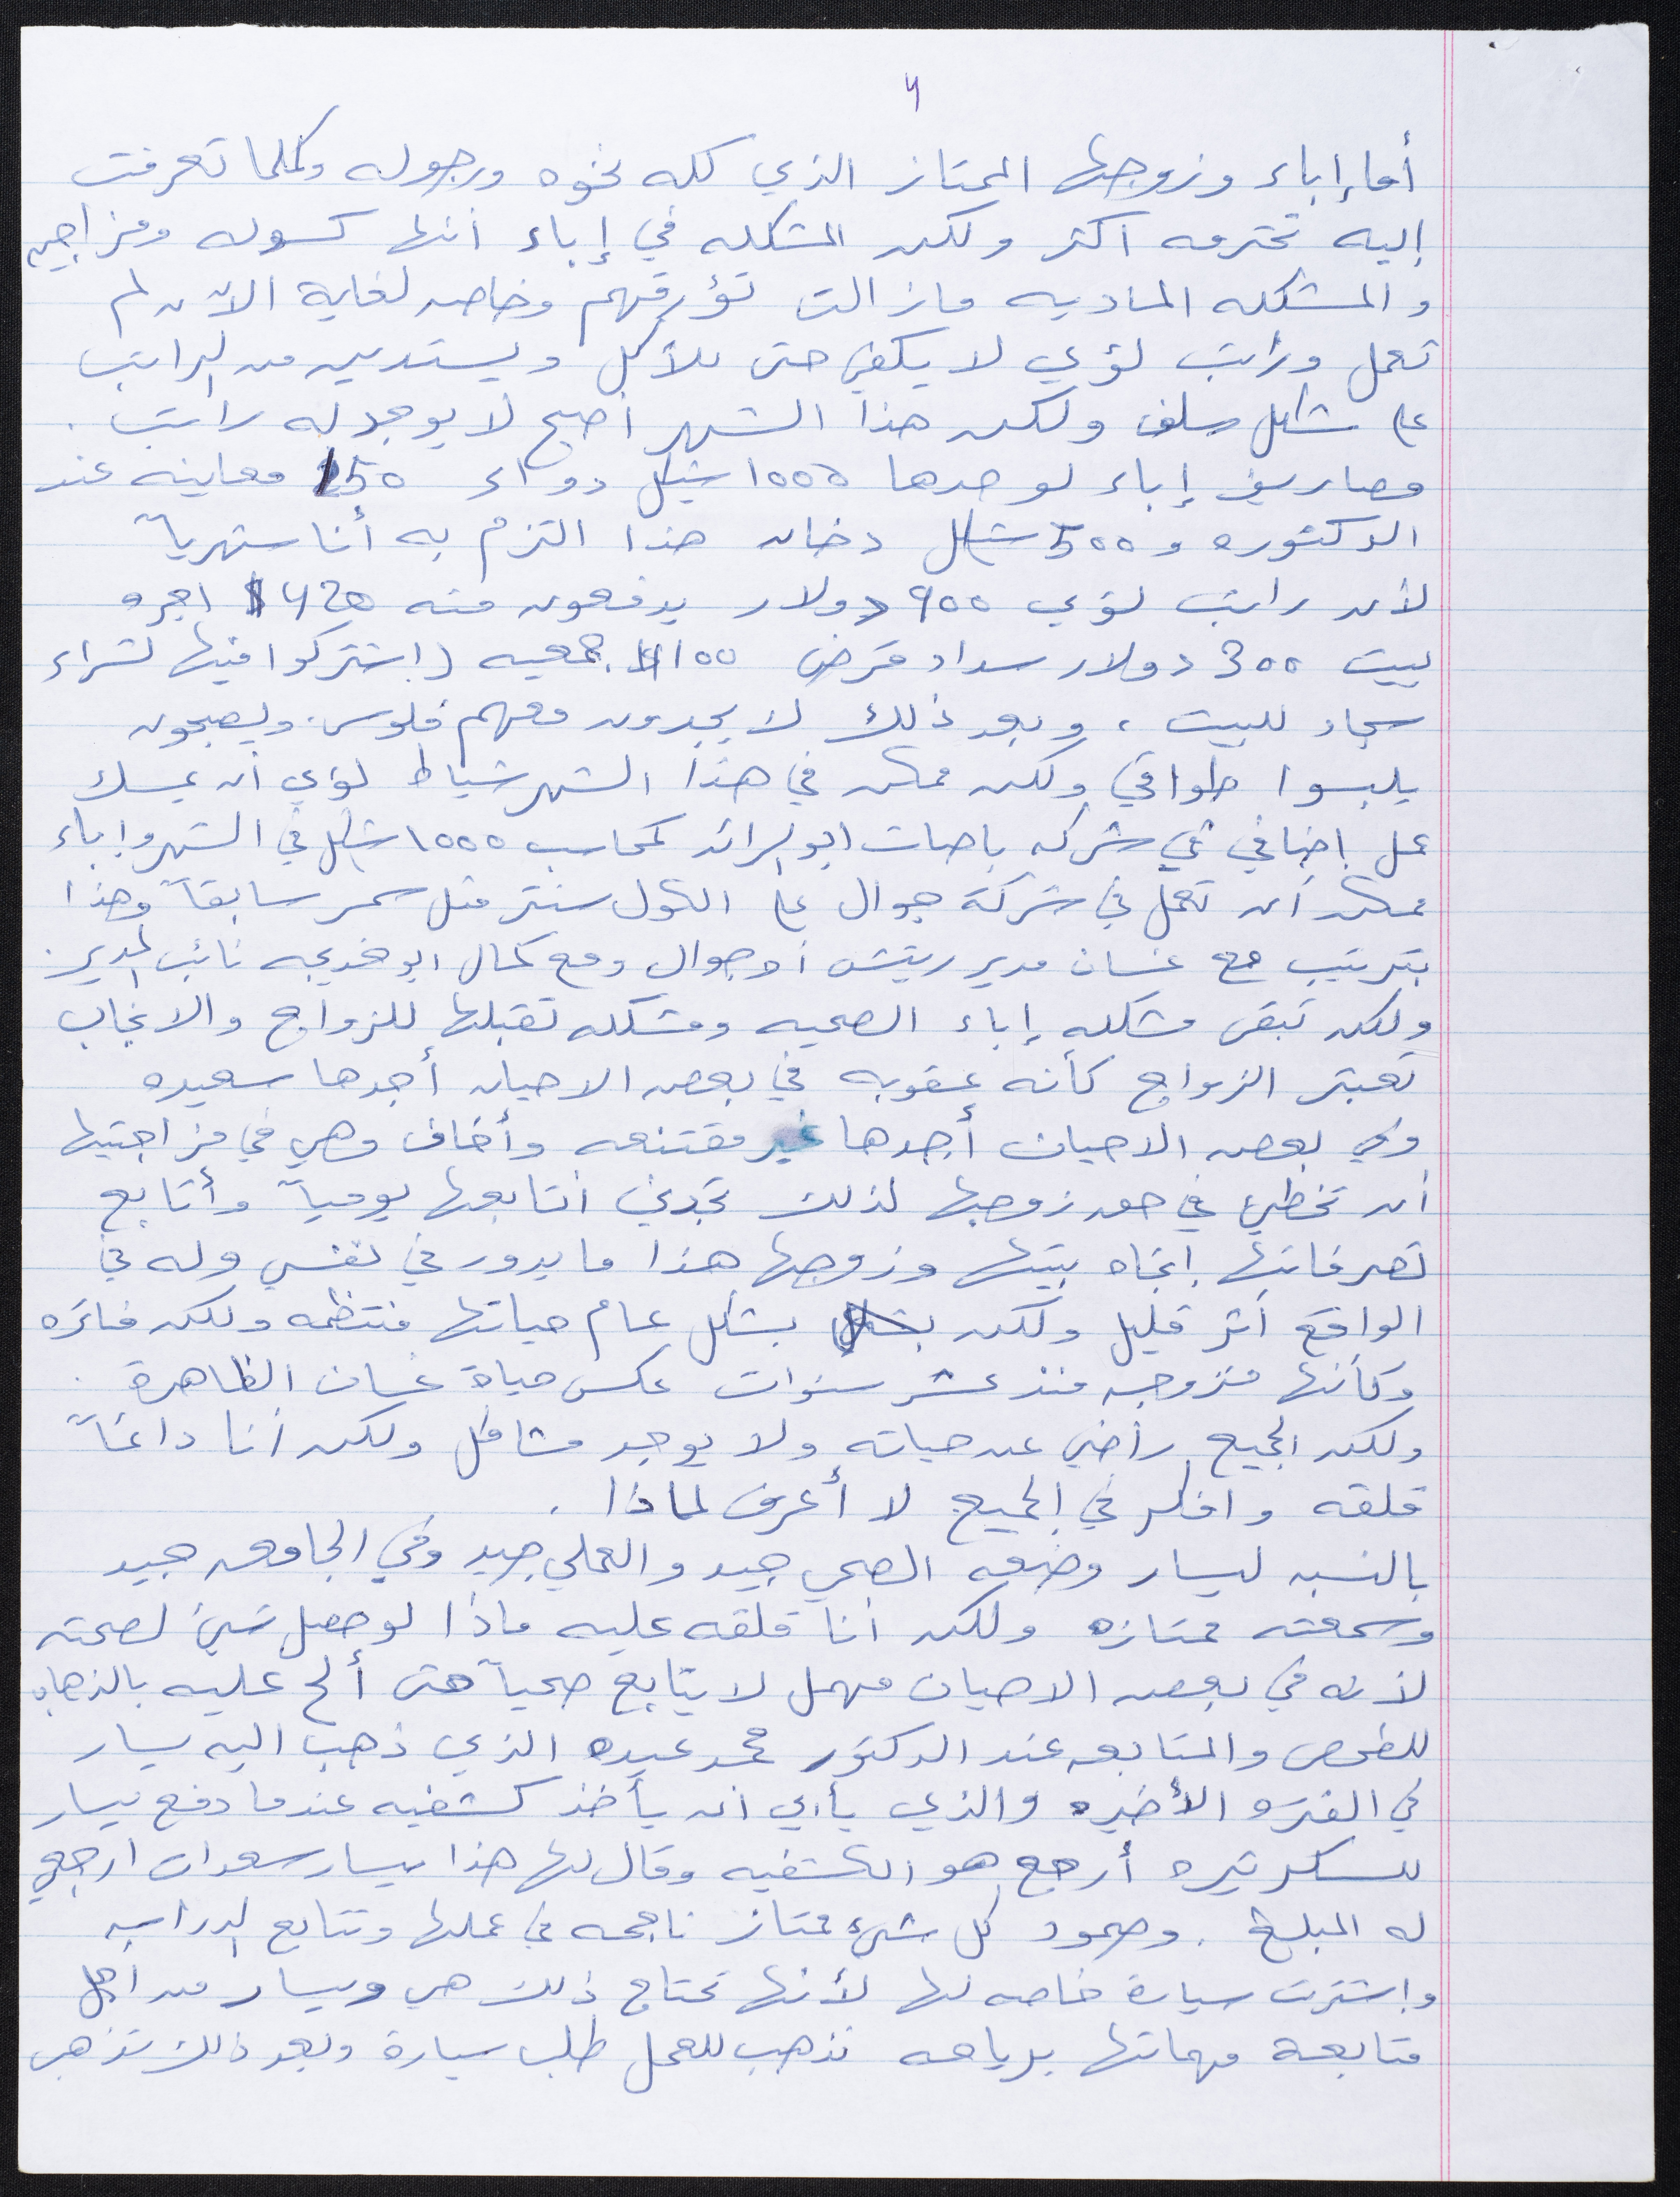 4
أما إباء وزوجها الممتاز الذي كله نخوه ورجوله وكلما تعرفت
إليه تحترمه اكثر ولكن المشكله في إباء أنها كسوله ومزاجيه
والمشكله الماديه مازالت تؤرقهم وخاصه لغاية الآن لم
تعمل وراتب لؤي لا يكفي حتى للأكل ويستدين من الراتب
على شكل سلف ولكن هذا الشهر أصبح لا يوجد له راتب .
مصاريف إباء لوحدها 1000 شيكل دواء 150 معاينه عند
الدكتوره و 500 شيكل دخان هذا التزم به أنا شهرياً
لأن راتب لؤي 900 دولار يدفعون منه 420$ اجره
بيت 300 دولار سداد قرض 100 جمعيه (اشتركوا فيها لشراء
سجاد للبيت ، وبعد ذلك لا يجدون معهم فلوس. ويصبحون
يلبسوا طواقي ولكن ممكن في هذا الشهر شباط لؤي أن يمسك
عمل إضافي في شركه باصات ابو الرائد كمحاسب 1000 شيكل في الشهر وإباء
ممكن أن تعمل في شركة جوال على الكول سنتر مثل سمر سابقاً وهذا
بترتيب مع غسان مدير ريتش أو جوال ومع كمال ابو خديجه نائب المدير.
ولكن تبقى مشكله إباء الصحيه ومشكله تقبلها للزواج والانجاب
تعبتر الزواج كأنه عقوبه في بعض الاحيان أجدها سعيده
وفي بعض الاحيان أجدها غير مقتنعه وأخاف وهي في مزاجيتها
أن تخطئ في حق زوجها لذلك تجدني أتابعها يومياً وأتابع
تصرفاتها إتجاه بيتها وزوجها هذا ما يدور في نفسي وله في
الواقع أثر قليل ولكن بشكل عام حياتها منتظمه ولكن فاتره
وكأنها متزوجه منذ عشر سنوات عكس حياة غسان الظاهرة .
ولكن الجميع راضي عن حياته ولا يوجد مشاكل ولكن أنا دائماً
قلقه وافكر في الجميع لا أعرف لماذا .
بالنسبه ليسار وضعه الصحي جيد والعملي جيد وفي الجامعه جيد
وسمعته ممتازه ولكن أنا قلقه عليه ماذا لو حصل شيئ لصحته
لأنه في بعض الاحيان مهمل لا يتابع صحياً حتى ألح عليه بالذهاب
للفحص والمتابعه عند الدكتور محمد عبيده الذي ذهب اليه يسار
في الفتره الأخيره والذي يأبي أن يأخذ كشفيه عندما دفع يسار
للسكرتيره أرجع هو الكشفيه وقال لها هذا يسار سعدات ارجعي
له المبلغ . وصمود كل شيئ ممتاز ناجحه في عملها وتتابع الدراسه
واشترت سيارة خاصه لها لأنها تحتاج ذلك هي ويسار من اجل
متابعة مهماتها برياحه تذهب للعمل طلب سيارة وبعد ذلك تذهب